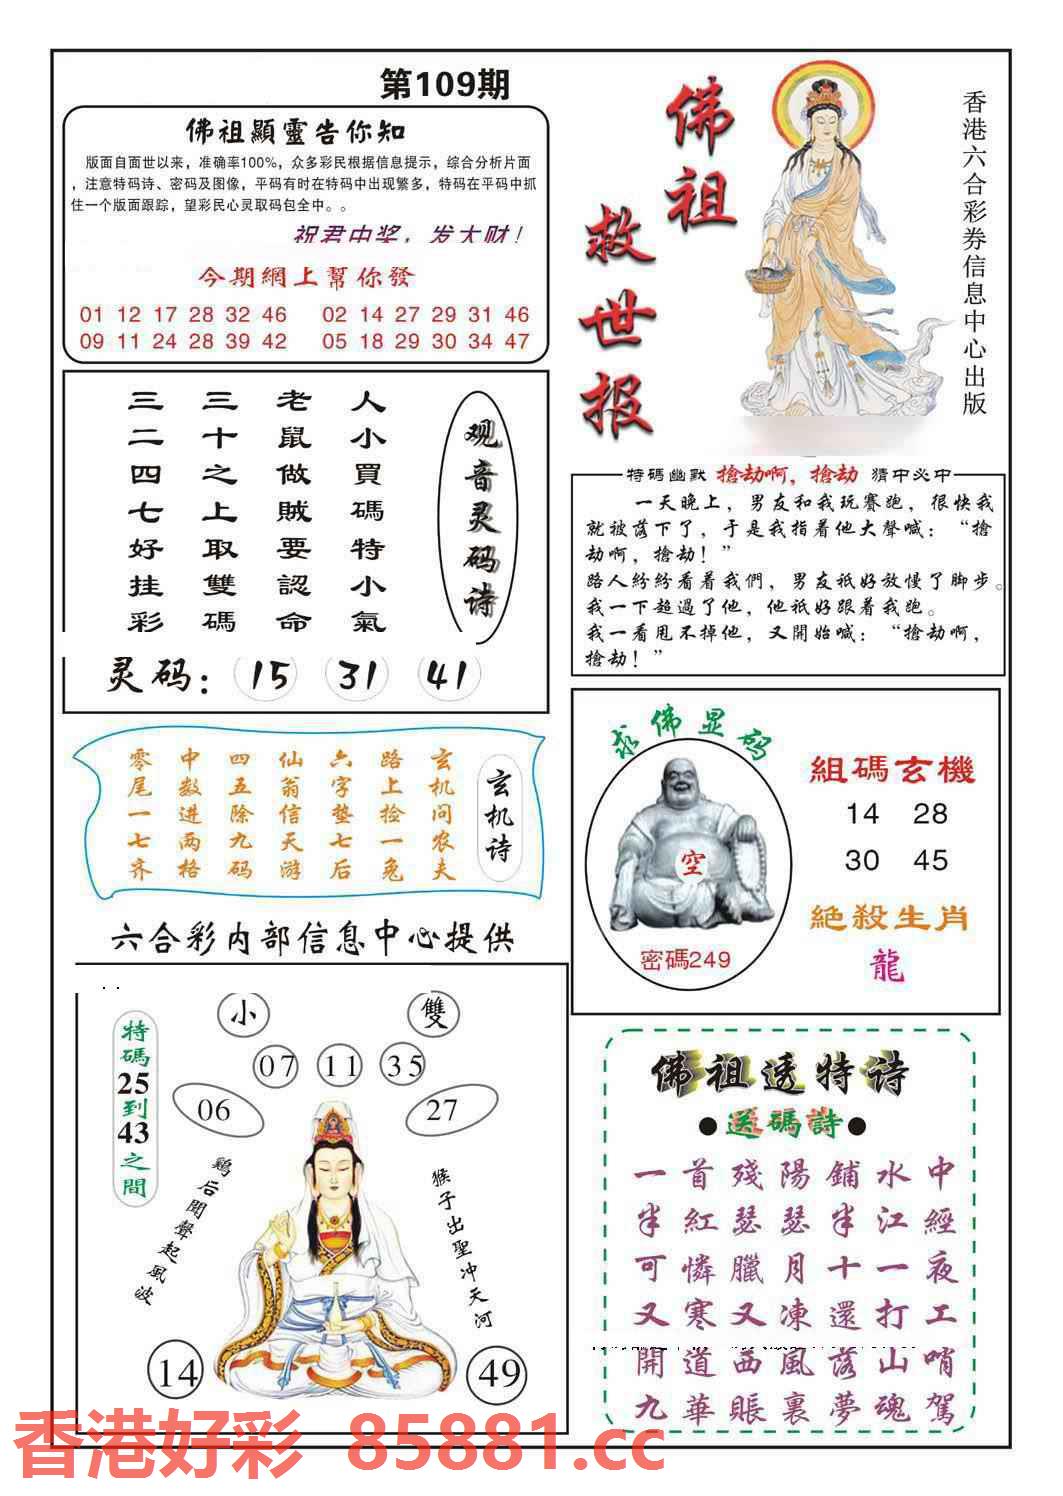 第109期
佛祖顯靈告你知
版面自面世以来，准确率100%，众多彩民根据信息提示，综合分析片面
，注意特码诗、密码及图像，平码有时在特码中出现繁多，特码在平码中抓
住一个版面跟踪，望彩民心灵取码包全中。。
祝君中奖，发大财！
今期網上幫你發
01 12 17 28 32 46 02 14 27 29 31 46
09 11 24 28 39 42 05 18 29 30 34 47
佛祖
救世报
香港六合彩券信息中心出版
观音灵码诗
人小買碼特小氣
老鼠做賊要認命
三十之上取雙碼
三二四七好挂彩
灵码：15 31 41
特碼幽默 搶劫啊，搶劫 猜中必中
一天晚上，男友和我玩賽跑，很快我
就被落下了，于是我指着他大聲喊：“搶
劫啊，搶劫！”
路人紛紛看着我們，男友衹好放慢了脚步。
我一下超過了他，他衹好跟着我跑。
我一看甩不掉他，又開始喊：“搶劫啊，
搶劫！”
玄机诗
玄机问农夫
路上捡一兔
六字垫七后
仙翁信天游
四五除九码
中数进两格
零尾一七齐
求佛显码
空
密碼249
組碼玄機
14 28
30 45
絕殺生肖
龍
六合彩内部信息中心提供
特碼25到43之間
小 雙
07 11 35
06 27
鷄后聞聲起風波
猴子出聖冲天河
14 49
佛祖透特诗
●送碼詩●
一首殘陽鋪水中
半紅瑟瑟半江經
可憐臘月十一夜
又寒又凍還打工
開道西風落山哨
九華賬裏夢魂駕
香港好彩 85881.cc